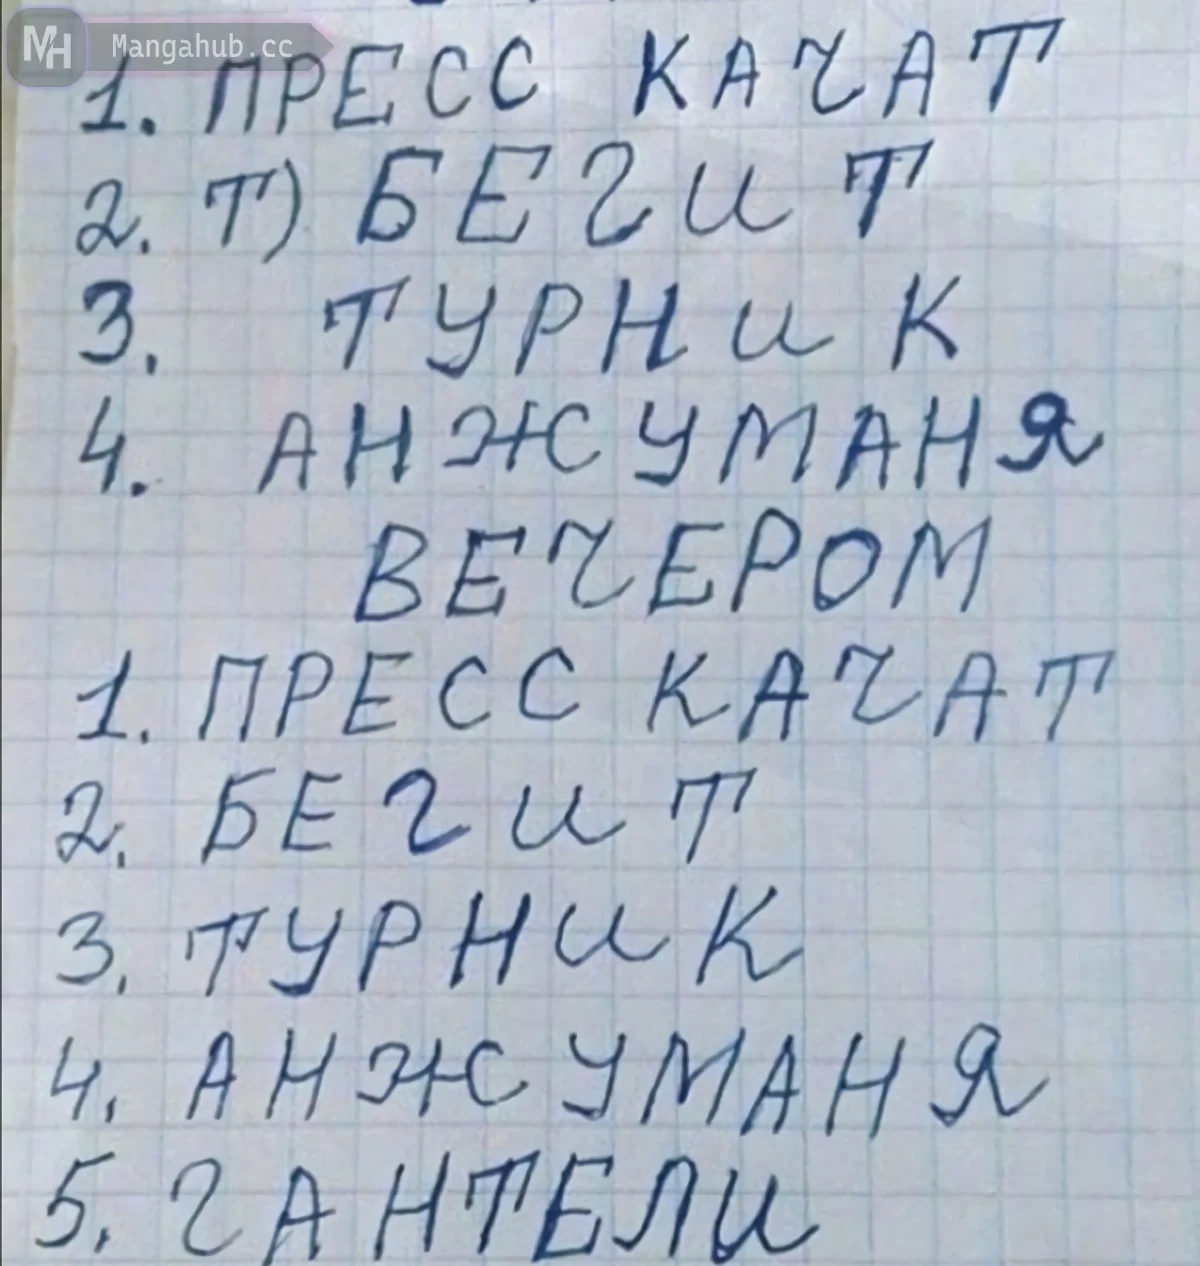 Mangahub.cc
1. ПРЕСС КАЧАТ
2. Т) БЕГИТ
3. ТУРНИК
4. АНЖУМАНЯ
ВЕЧЕРОМ
1. ПРЕСС КАЧАТ
2. БЕГИТ
3. ТУРНИК
4. АНЖУМАНЯ
5. ГАНТЕЛИ